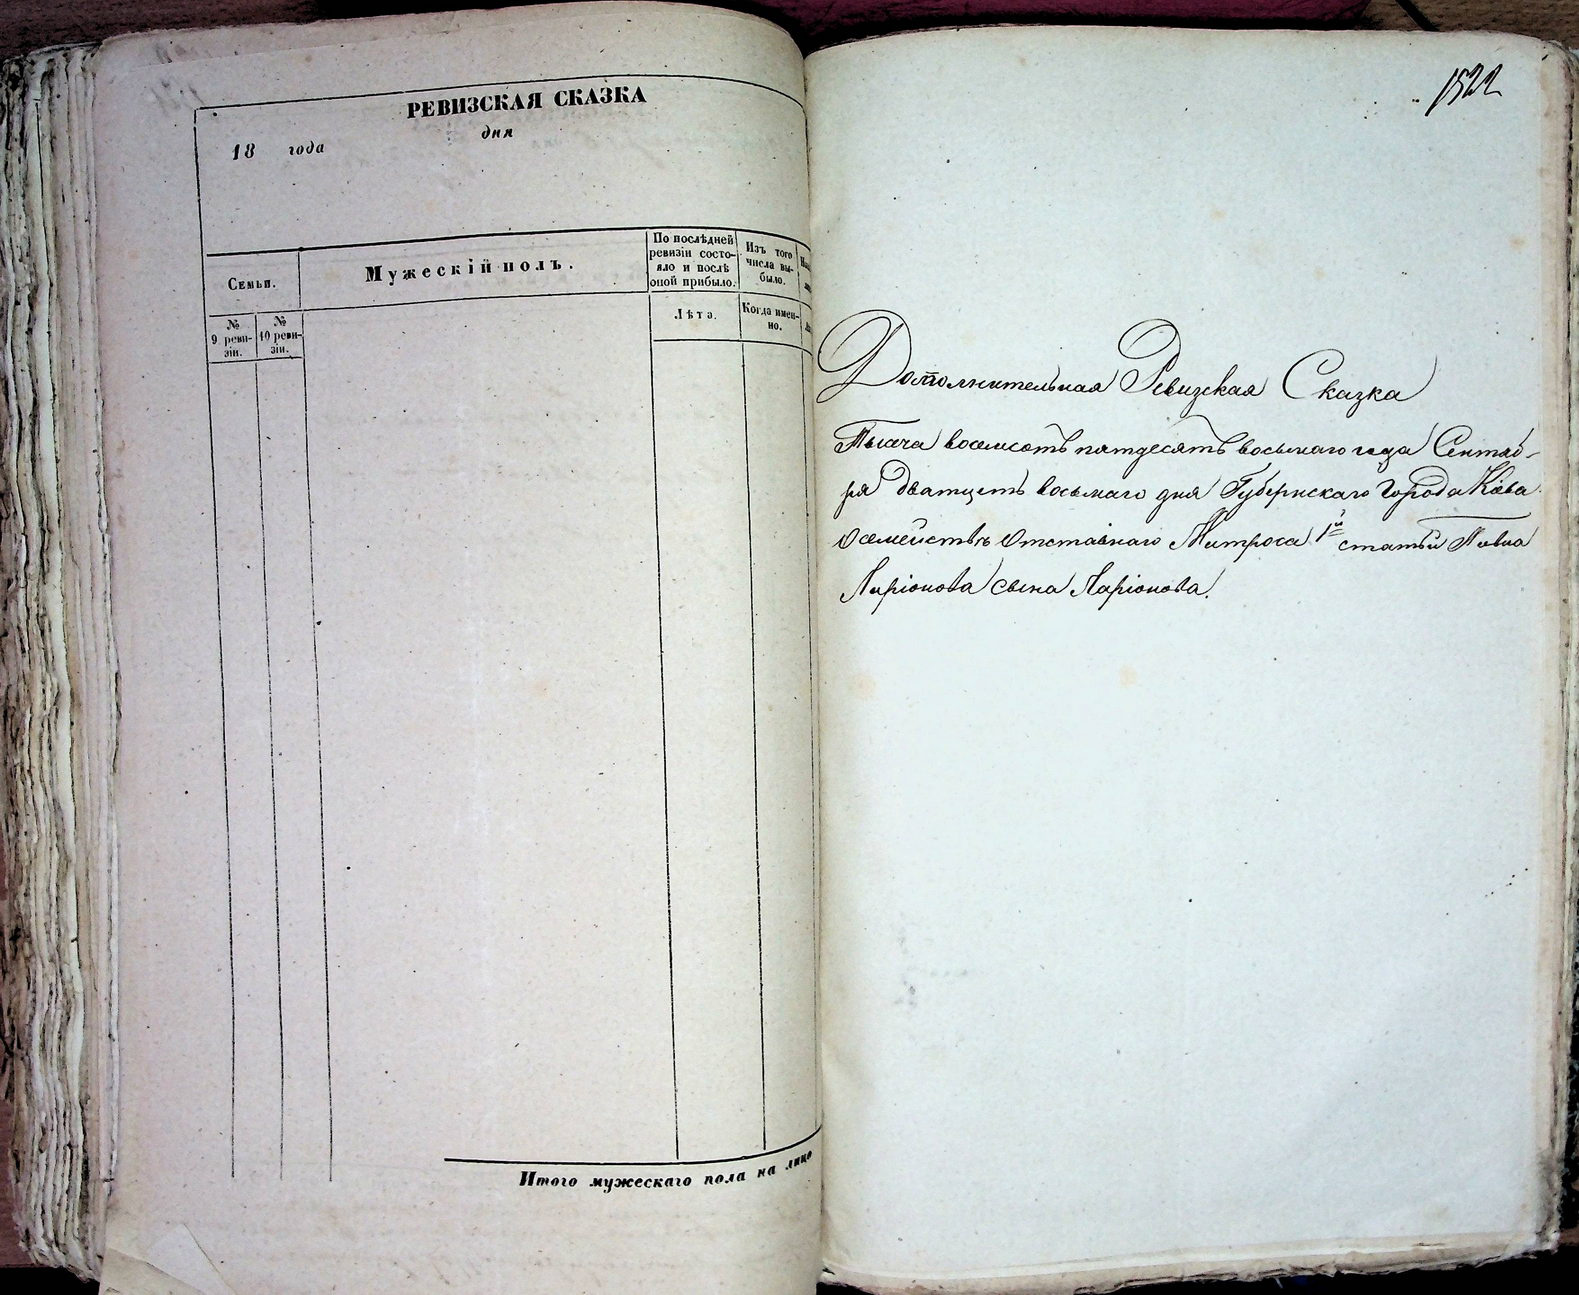 РЕВИЗСКАЯ СКАЗКА
дня
18 года
Семьи.
Мужескій полъ.
По послѣдней
ревизіи состо-
яло и послѣ
оной прибыло.
Изъ того
числа вы-
было.
№
9 реви-
зіи.
№
10 реви-
зіи.
Лѣта.
Когда имен-
но.
Итого мужескаго пола на лицо
1522
Дополнительная Ревизская Сказка
Тысяча восемсотъ пятдесятъ восьмаго года Сентяб-
ря дватцеть восьмаго дня Губернскаго Города Кіева
о семействѣ отставнаго Матроса 1й статьи Павла
Ларіонова сына Ларіонова.